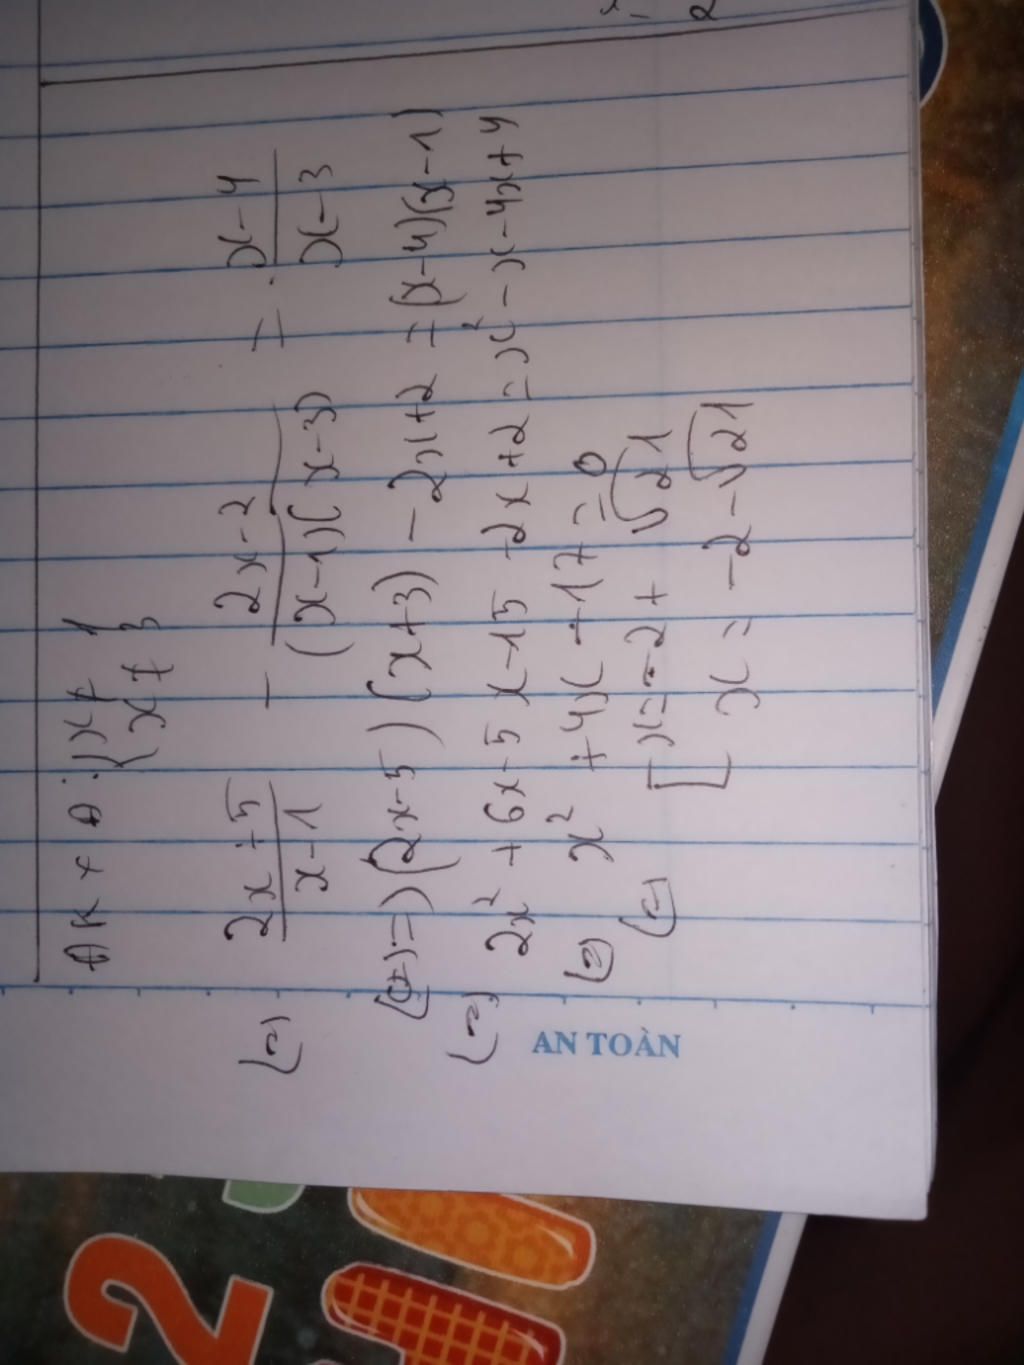 ĐKXĐ: { x ≠ 1
x ≠ 3
(=) 2x+5 / x-1 - 2x-2 / (x-1)(x-3) = x-4 / x-3
(=) (2x-5)(x+3) - 2x+2 = (x-4)(x-1)
(=) 2x² + 6x - 5x - 15 - 2x + 2 = x² - x - 4x + 4
(=) x² + 4x - 17 = 0
(=) [ x = -2 + √21
x = -2 - √21
AN TOÀN
2